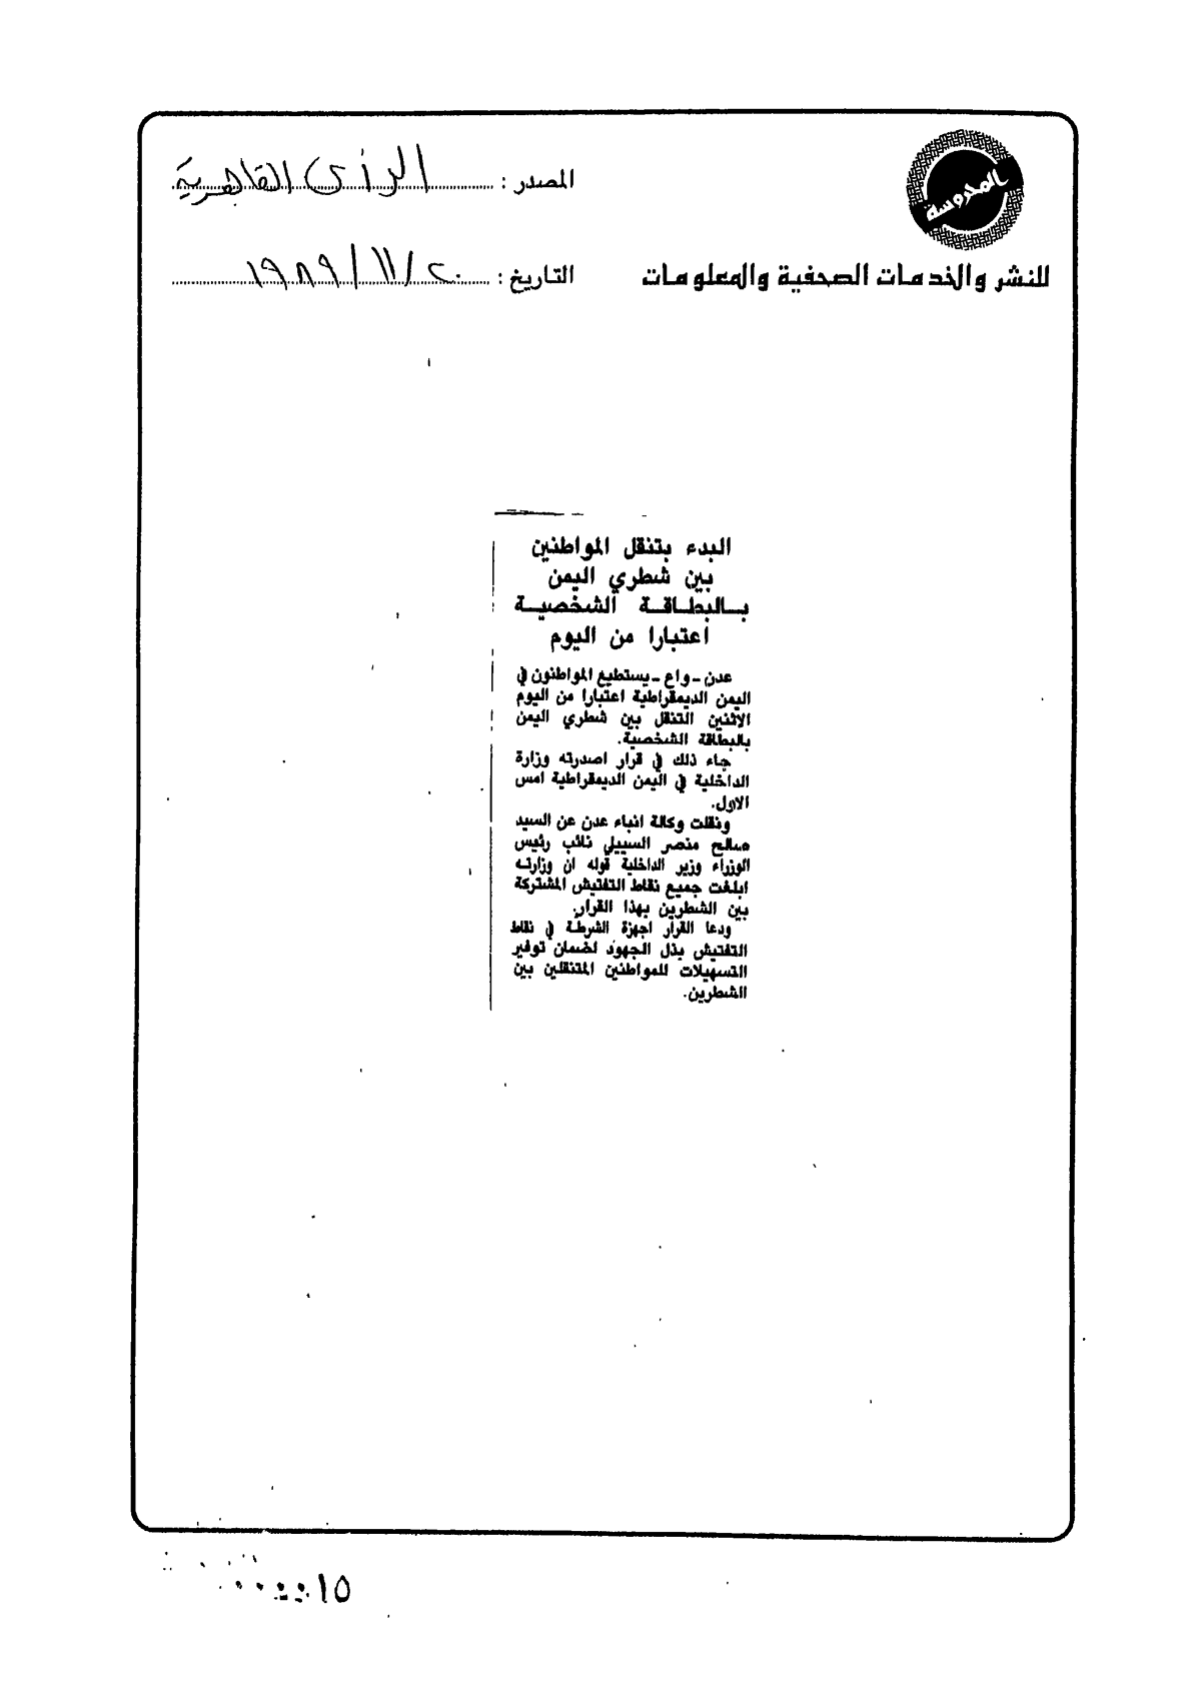 المحروسة
للنشر والخدمات الصحفية والمعلومات
المصدر : الرأى القاهرية
التاريخ : ٢٠/١١/١٩٨٩
البدء بتنقل المواطنين
بين شطري اليمن
بالبطاقة الشخصية
اعتبارا من اليوم
عدن - واع - يستطيع المواطنون في
اليمن الديمقراطية اعتبارا من اليوم
الاثنين التنقل بين شطري اليمن
بالبطاقة الشخصية.
جاء ذلك في قرار اصدرته وزارة
الداخلية في اليمن الديمقراطية امس
الاول.
ونقلت وكالة انباء عدن عن السيد
صالح منصر السييلي نائب رئيس
الوزراء وزير الداخلية قوله ان وزارته
ابلغت جميع نقاط التفتيش المشتركة
بين الشطرين بهذا القرار.
ودعا القرار اجهزة الشرطة في نقاط
التفتيش بذل الجهود لضمان توفير
التسهيلات للمواطنين المتنقلين بين
الشطرين.